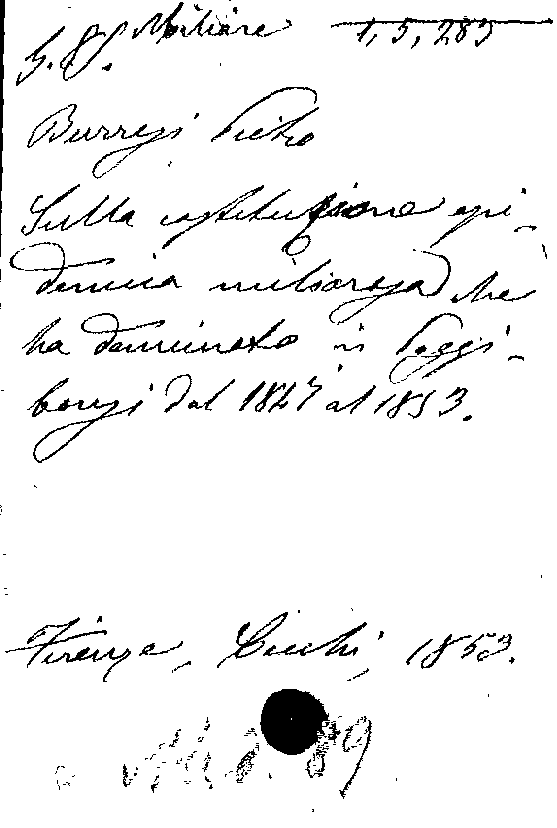 Miliare 1, 5, 283
Burresi Pietro
Sulla costituzione epi-
demica migliarosa che
ha dominato in Poggi-
bonsi dal 1847 al 1853.
Firenze, Cecchi, 1853.